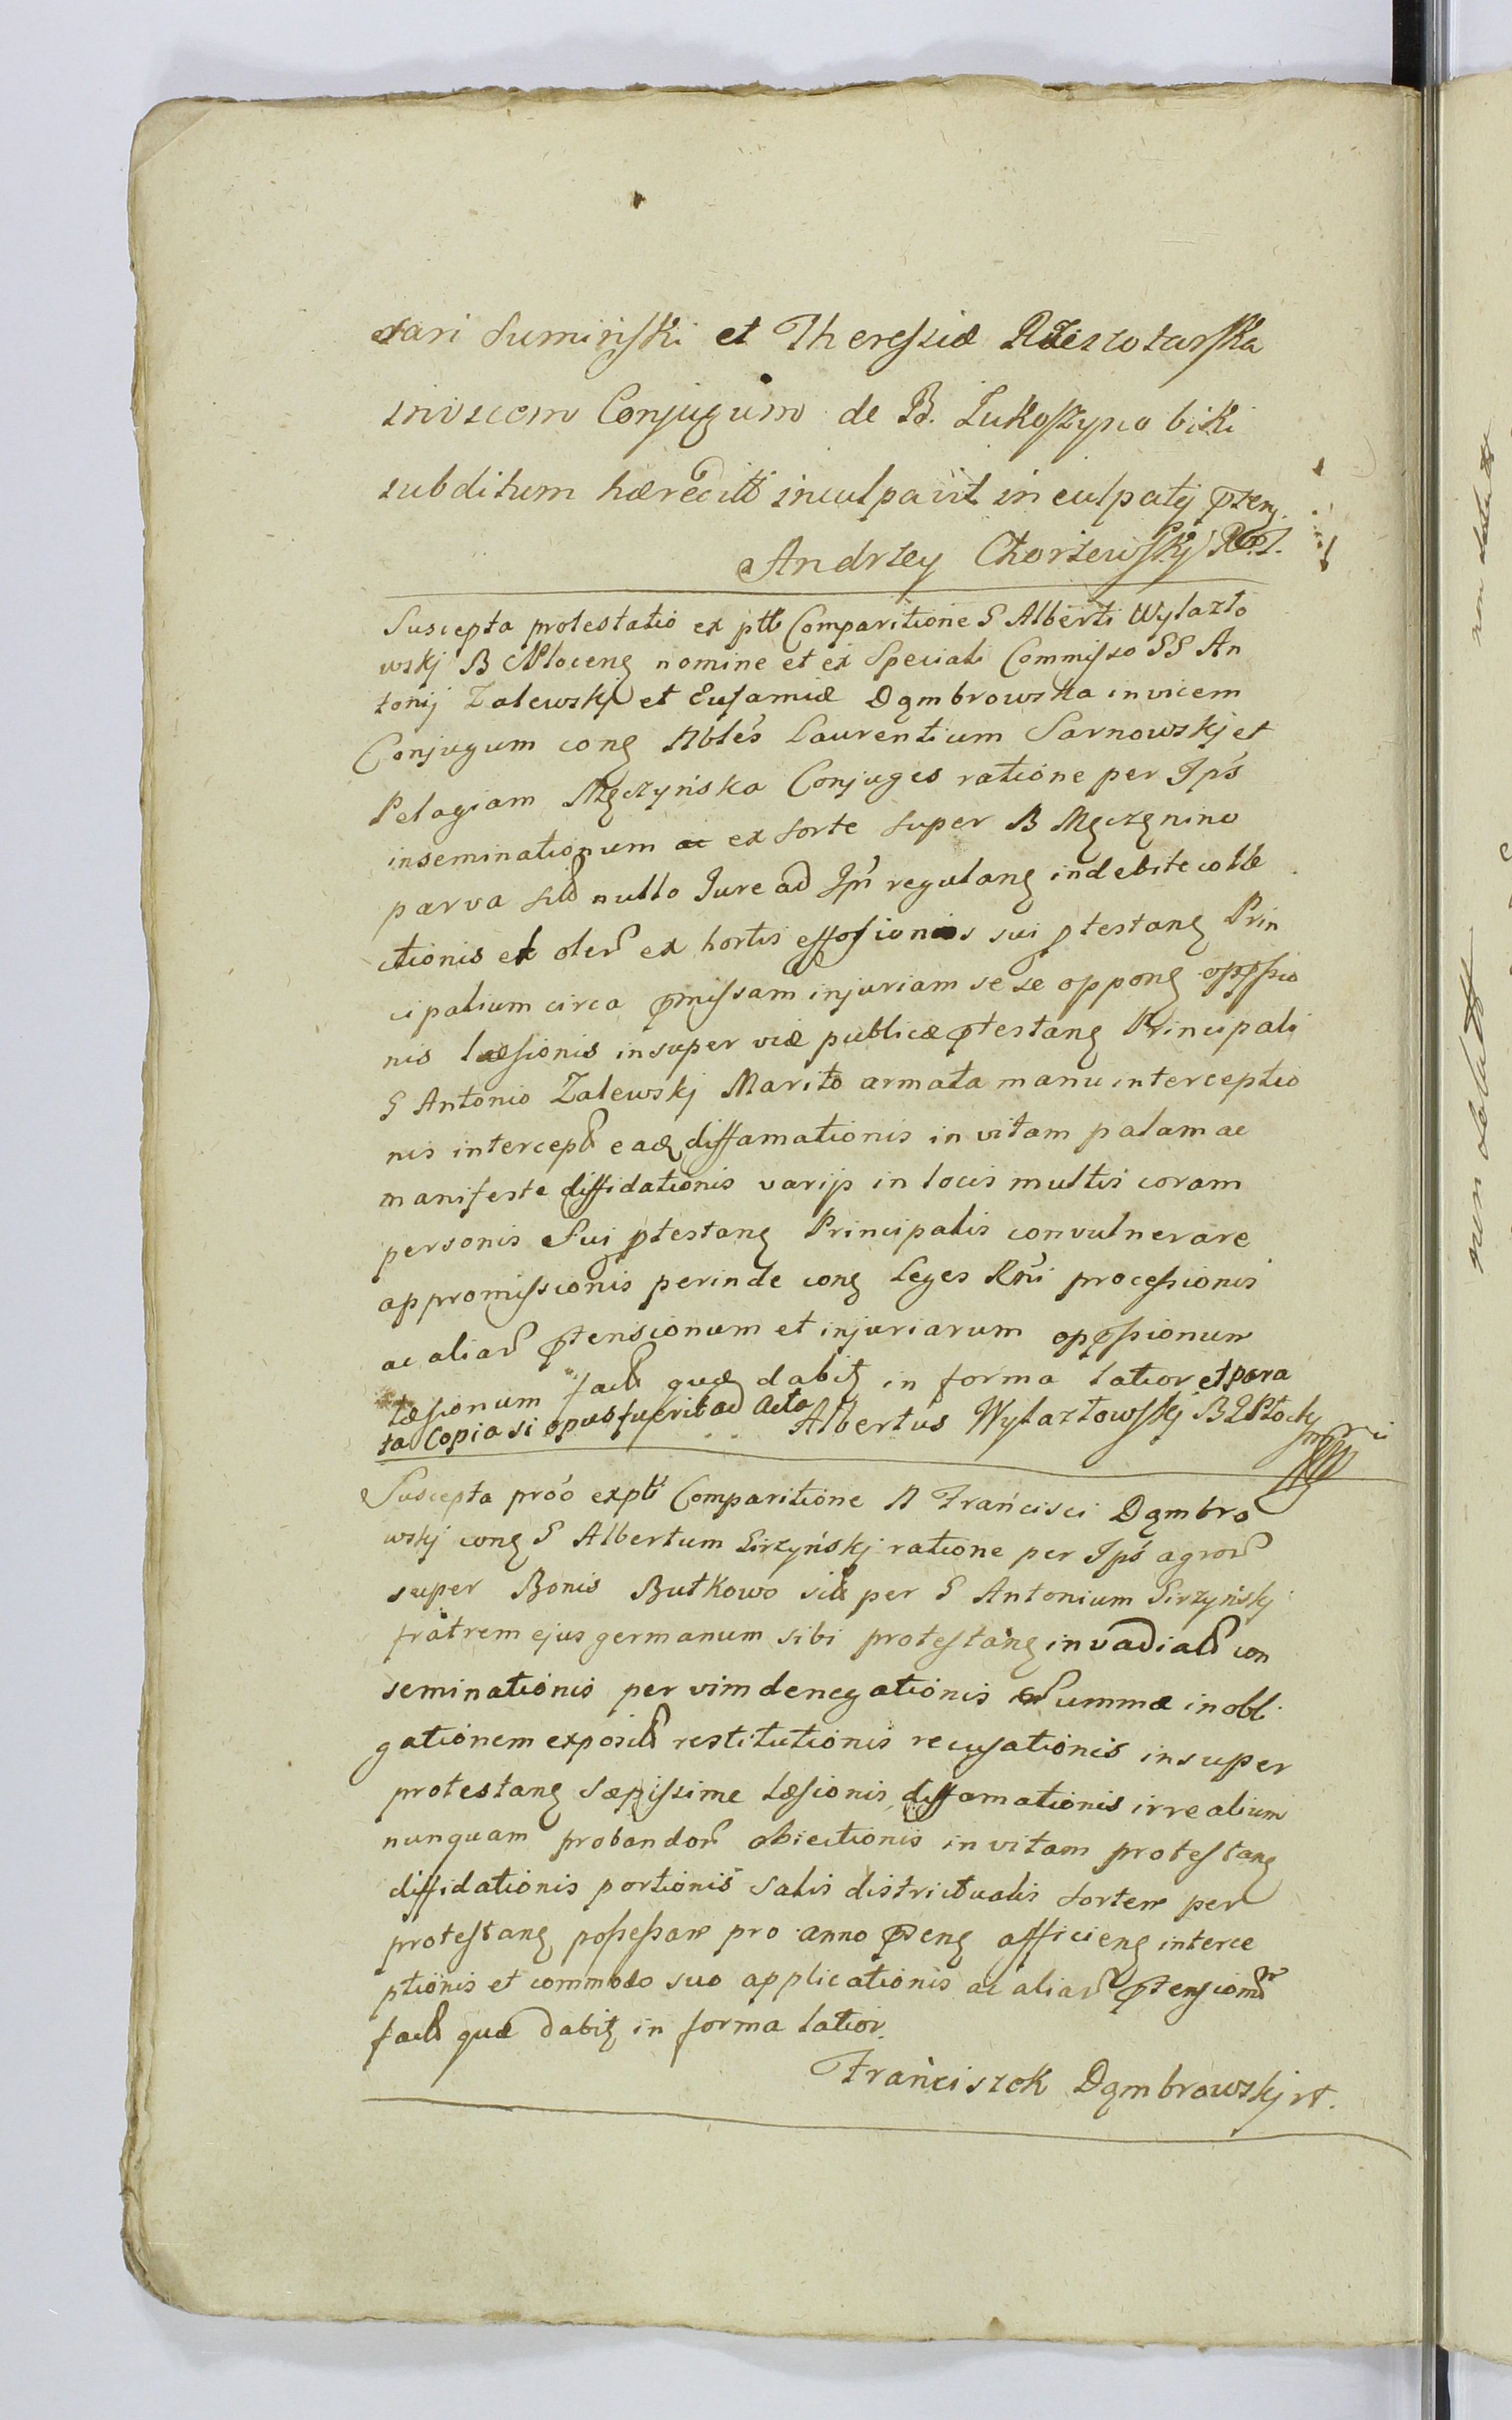 sari Sumiński et Theressiæ Rzeszotarska
invicem Conjugum de B. Lukoszyno biki
subditum hæredittÌ inculpavit in culpatÿ
Andrzey Chorzewskj
Suscepta protestatio ex ptti Comparitione G Alberti Wylazlo
wskj B nomine et ex Speciali Commisso GG An
tonij Zalewskj et Eufamiæ Dąmbrowska invicem
Conjugum cong Nbles Laurentium Sarnowskj et
Pelagiam Męczyńska Conjuges ratione per Ips
inseminationum ac ex sorte super B Męczęnino
parva nullo Jure ad Ips regulang indebite colle
ctionis et oler ex hortis effosionis sui ptestang Prin
cipalium circa pmissam injuriam sese oppong opspssio
nis læsionis insuper viæ publicæ ptestang Principali
G Antonio Zalewskj Marito armata manu interceptio
nis intercept eaq diffamationis in vitam palam ac
manifeste diffidationis varijs in locis multis coram
personis Sui ptestang Principalis convulnerare
appromissionis perinde cong Leges Rni processionis
ac aliar ptensionum et injuriarum oppssionum
læsionum fact quæ dabit in forma latior et para
ta Copia si opus fuerit ad Acta Albertus Wylazłowskj
Suscepta pro'o ex pti Comparitione N Francisci Dąmbro
wskj cong G Albertum Girzyńskj ratione per Ips agror
super Bonis Butkowo sitt per G Antonium Girzyńskj
fratrem ejus germanum sibi protestang invadiatt con
seminationis per vim denegationis Summæ in obli
gationem exposit restitutionis recusationis insuper
protestang sæpissime læsionis diffamationis irrealium
nunquam probandor obiectionis in vitam protestang
diffidationis portionis salis districtualis sortem per
protestang possessam pro anno pseng afficieng interce
ptionis et commodo suo applicationis ac aliar ptensionum
fact quæ dabit in forma latior.
Franciszek Dąmbrowskj